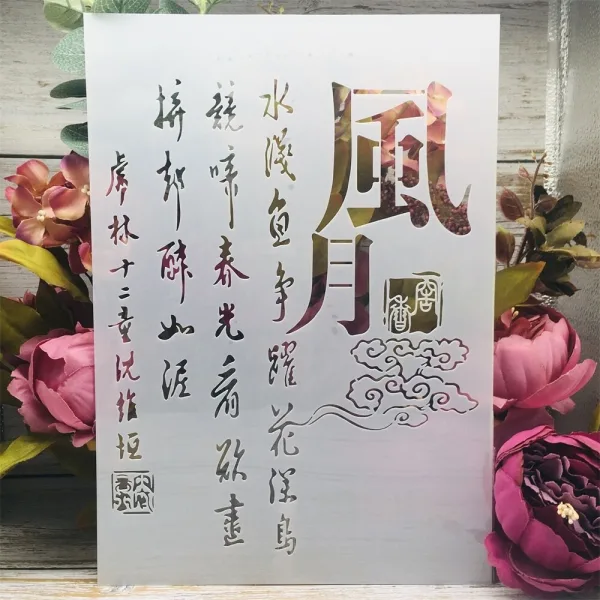 風月
水淺魚争躍花深鳥
競啼春光看欲盡
拚却醉如泥
虎林十二童沈維垣